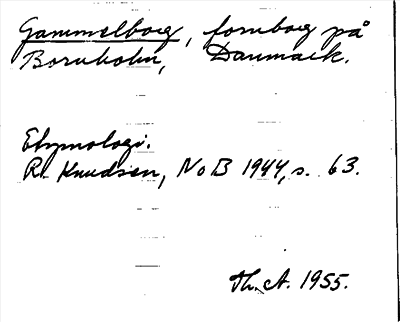 Gammelborg, fornborg på
Bornholm, Danmark.
Etymologi.
R. Knudsen, NoB 1944, s. 63.
Th. A. 1955.